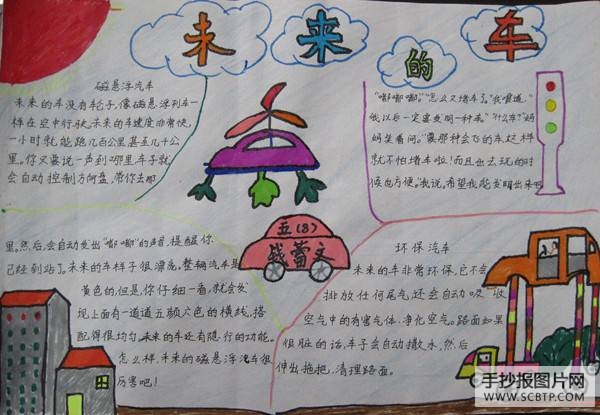 未来的车
磁悬浮汽车
未来的车没有轮子,像磁悬浮列车一
样在空中行驶,未来的车速度非常快,
一小时就能跑几百公里甚至几千公
里。你只要说一声到哪里车子就
会自动控制方向盘,带你去那
里。然后,会自动发出“嘟嘟”的声音,提醒你
已经到站了。未来的车样子很漂亮。整辆汽车是
黄色的但是,你仔细一看,就会发
现上面有一道道五颜六色的横线,搭
配得很均匀。未来的车还有隐行的功能。
怎么样,未来的磁悬浮汽车很
厉害吧!
“嘟嘟嘟”“怎么又堵车了。”我嘀道,
“我以后一定要发明一种车。”“什么车?”妈
妈笑着问。“像那种会飞的车,这样
就不怕堵车啦!而且出去玩的时
候也方便。”我说。希望我能发明出来吧
五(8)
钱蕾文
环保汽车
未来的车非常环保,它不会
排放任何尾气,还会自动吸收
空气中的有害气体,净化空气。路面如果
很脏的话,车子会自动撒水,然后
伸出拖把,清理路面。
手抄报图片网
WWW.SCBTP.COM